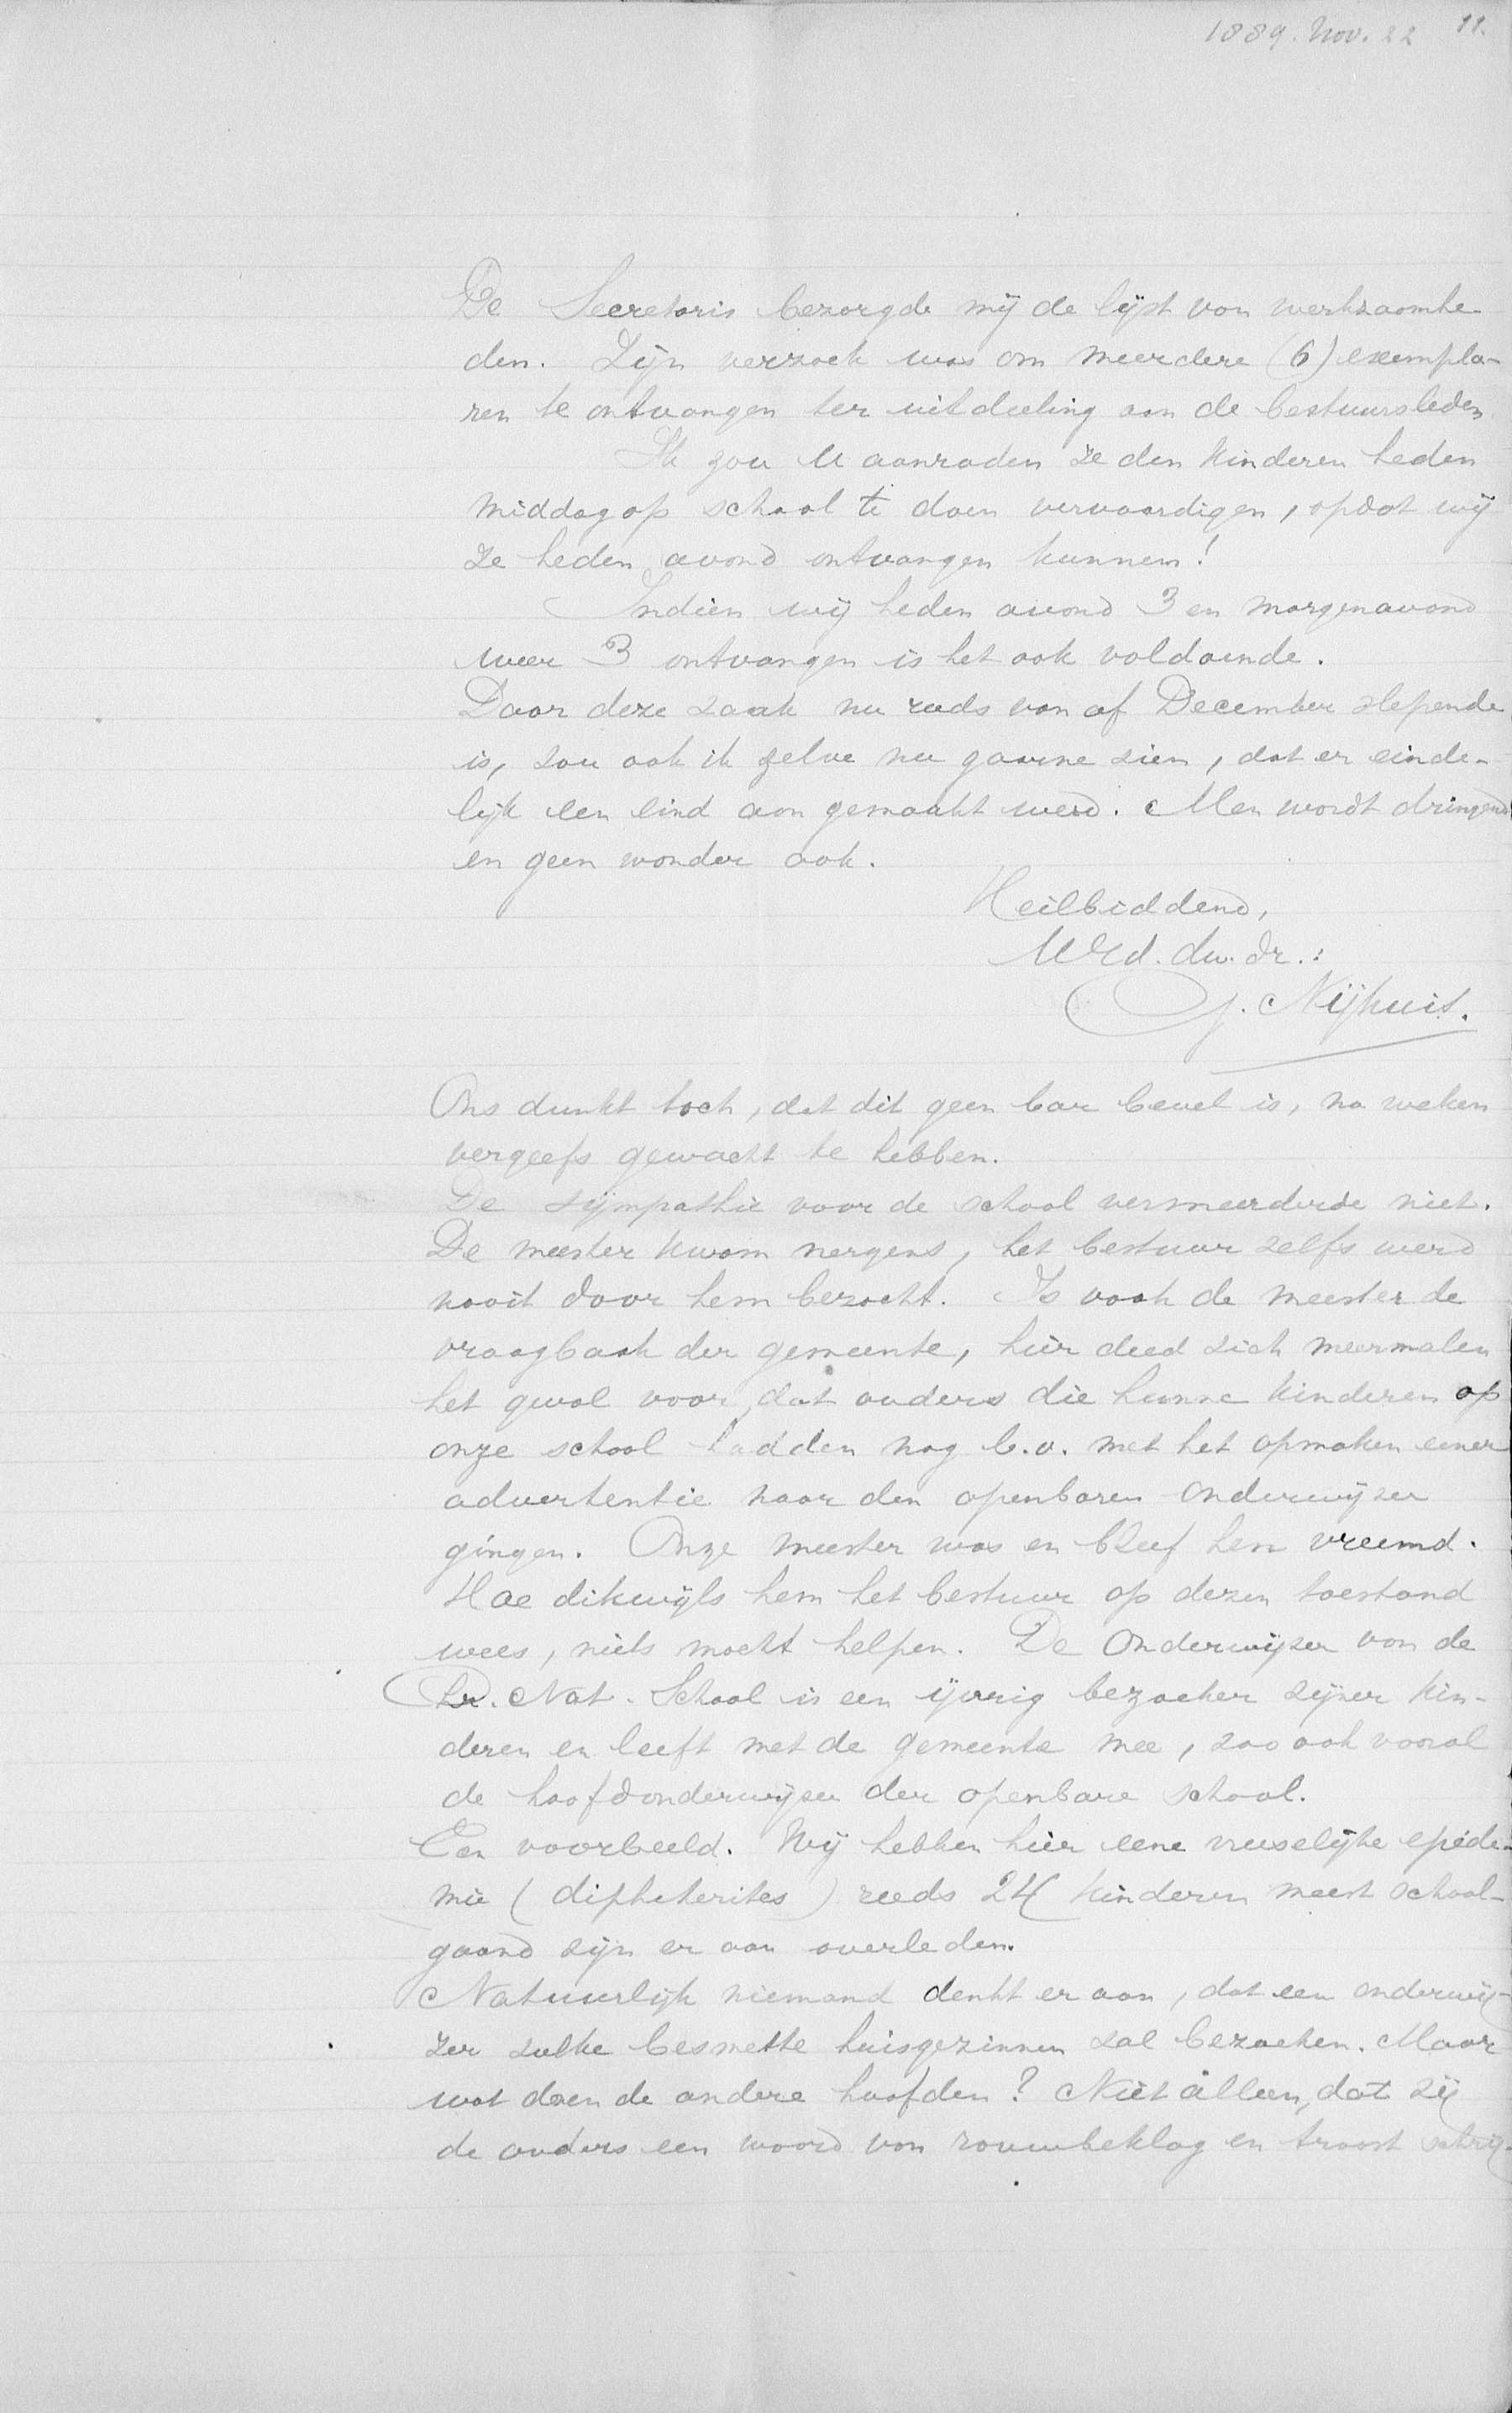 1889. Nov. 22 11.
De Secretaris bezorgde mij de lijst van werkzaamhe-
den. Zijn verzoek was om meerdere (6) exempla-
ren te ontvangen ter uitdeeling aan de bestuursleden
Ik zou U aanraden ze den kinderen heden
middag op school te doen vervaardigen, opdat wij
ze heden avond ontvangen kunnen!
Indien wij heden avond 3 en morgenavond
weer 3 ontvangen is het ook voldoende.
Daar deze zaak nu reeds van af December slepende
is, zou ook ik zelve nu gaarne zien, dat er einde-
lijk een eind aan gemaakt werd. Men wordt dringend
en geen wonder ook.
Heilbiddend,
UEd. dw. dr.:
J. Nijhuis.
Ons dunkt toch, dat dit geen bar bevel is, na weken
vergeefs gewacht te hebben.
De sijmpathie voor de school vermeerderde niet.
De meester kwam nergens, het bestuur zelfs werd
nooit door hem bezocht. Is vook de meester de
vraagbaak der gemeente, hier deed zich meermalen
het geval voor, dat ouders die hunne kinderen op
onze school hadden nog b.v. met het opmaken eener
advertentie naar den openbaren onderwijzer
gingen. Onze meester was en bleef hen vreemd.
Hoe dikwijls hem het bestuur op dezen toestand
wees, niets mocht helpen. De Onderwijzer van de
Chr. Nat. School is een ijverig bezoeker zijner kin-
deren en leeft met de gemeente mee, zoo ook vooral
de hoofdonderwijzer der openbare school.
Een voorbeeld. Wij hebben hier eene vreeselijke epide-
mie (diphteritis) reeds 24 kinderen meest school-
gaand zijn er aan overleden.
Natuurlijk niemand denkt er aan, dat een onderwij-
zer zulke besmette huisgezinnen zal bezoeken. Maar
wat doen de andere hoofden? Niet alleen, dat zij
de ouders een woord van rouwbeklag en troost schrij-